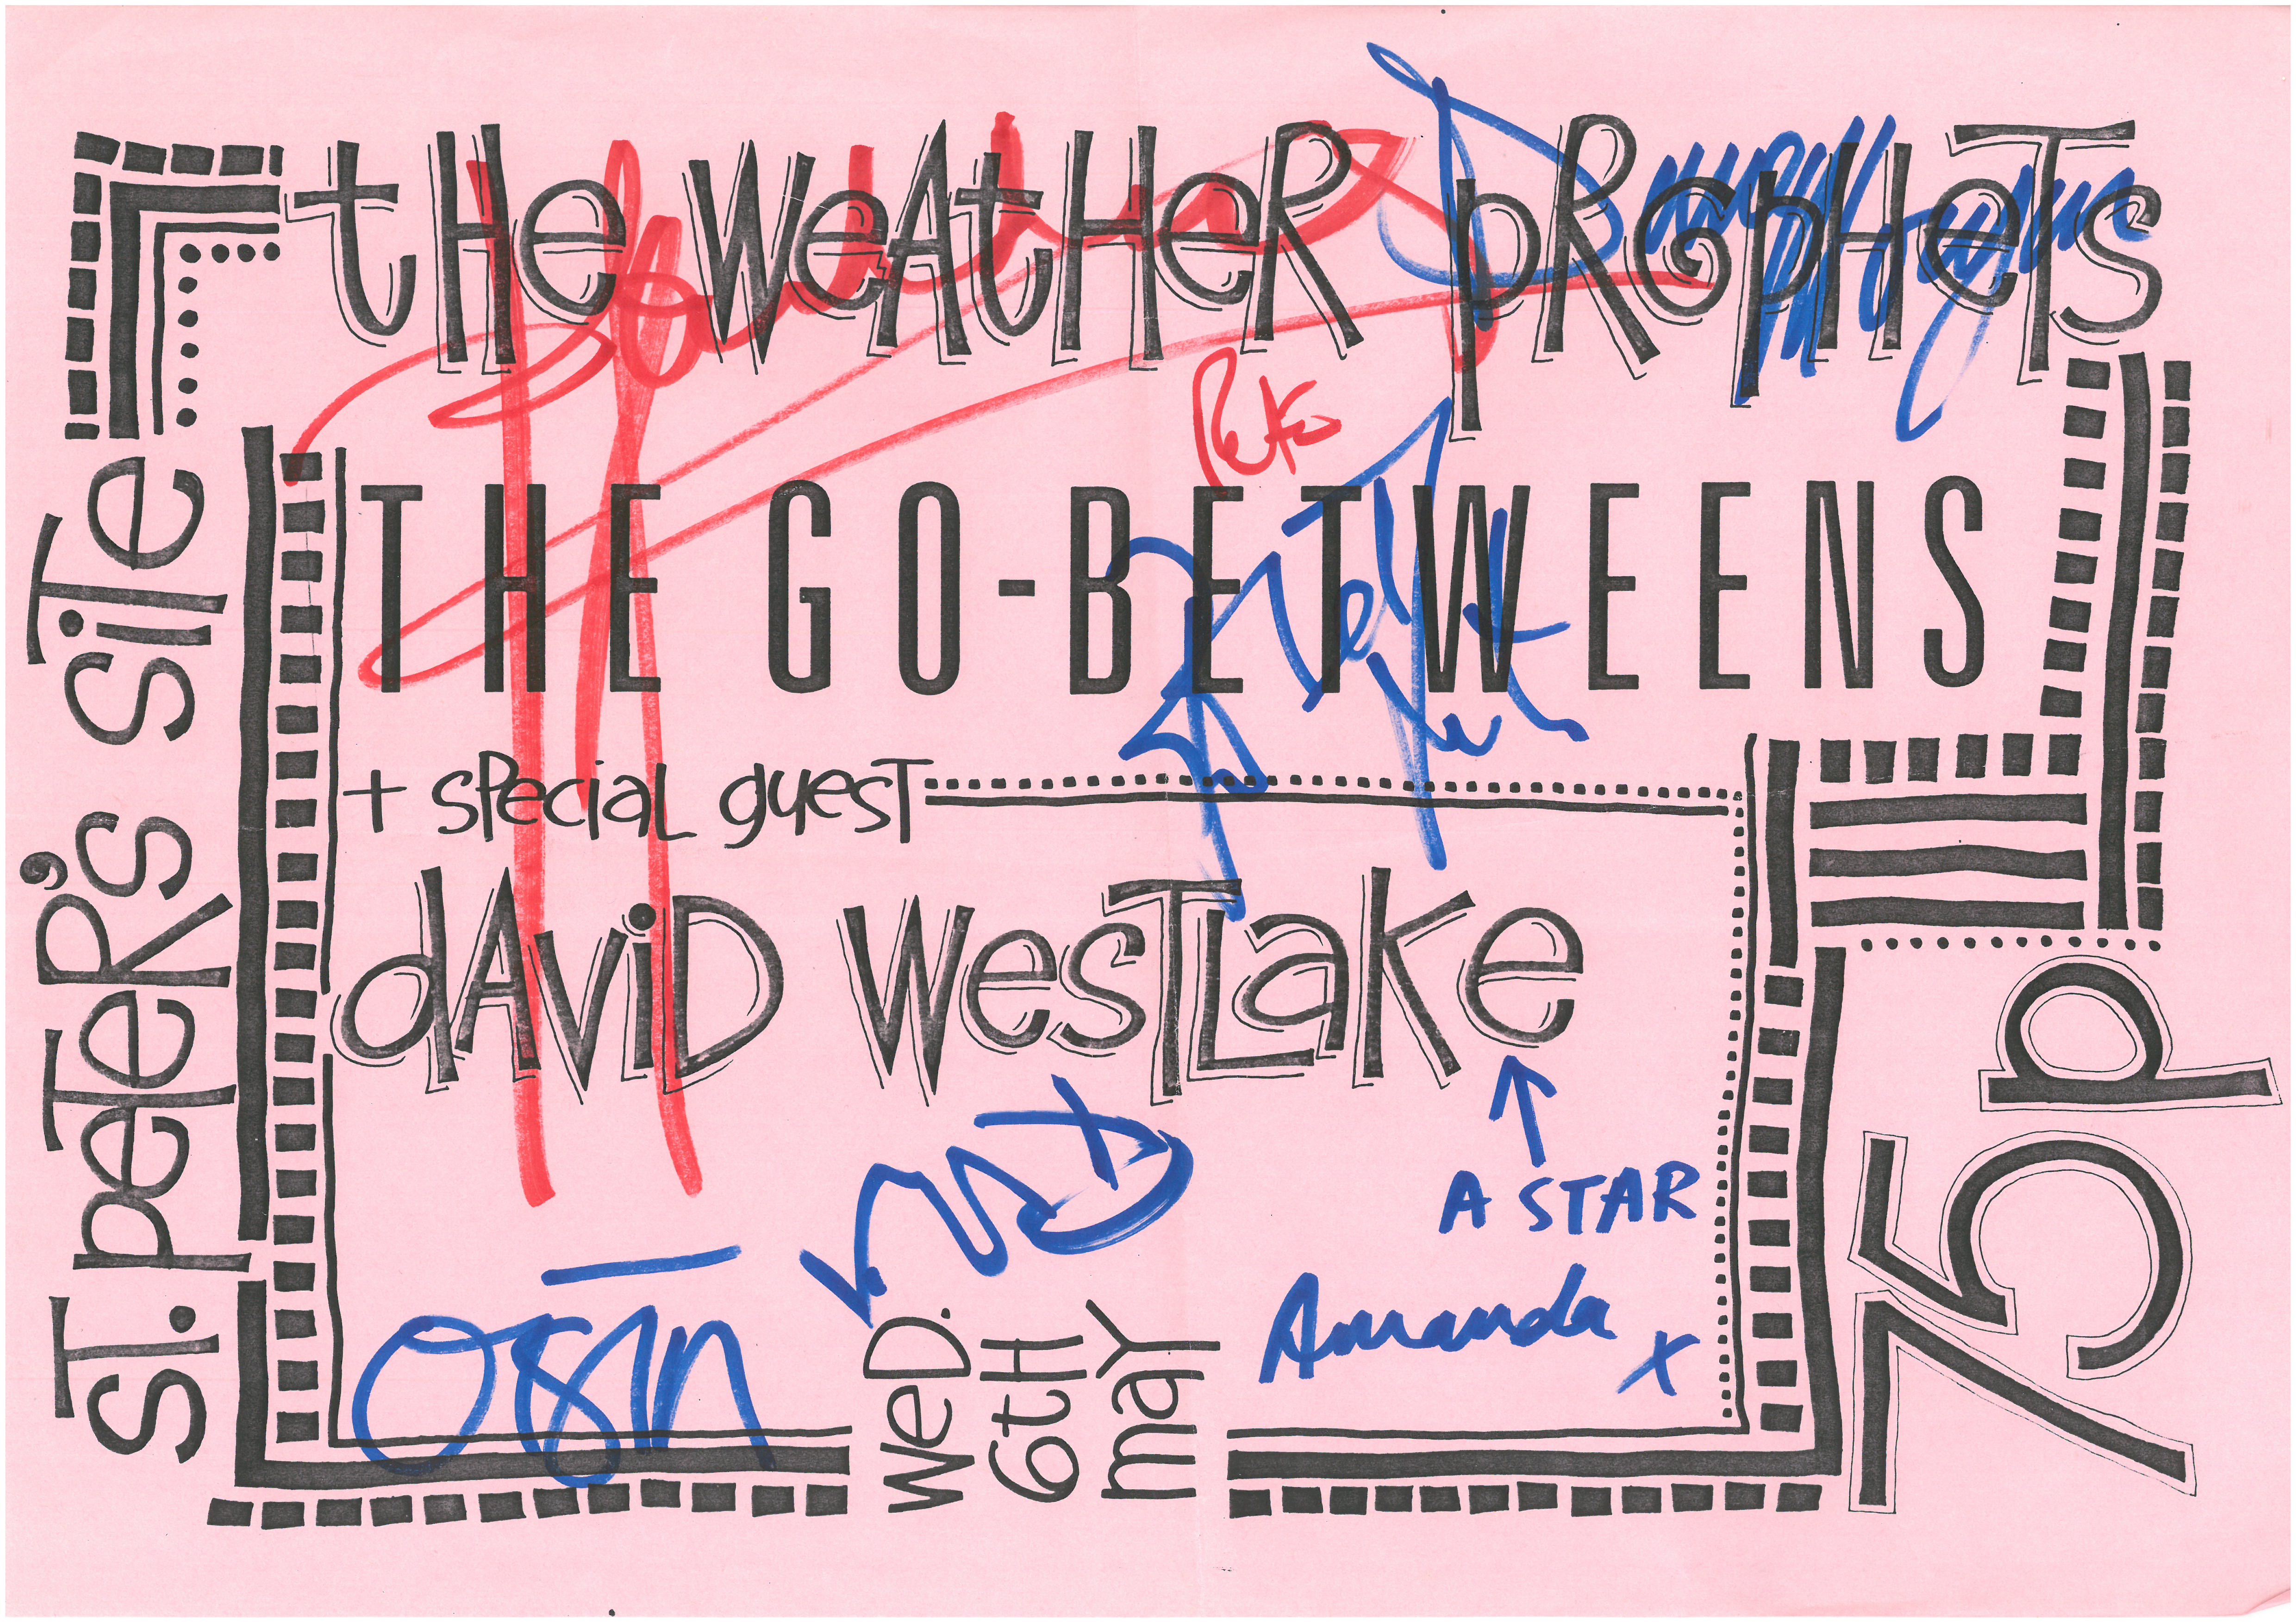 tHe WeAtHeR pRopHeTs
Pete
THE GO-BETWEENS
+ SPeciaL guesT
dAViD WesTLaKe
A STAR
Amanda x
WeD.
6tH
maY
ST. peTeR's SiTe
75p